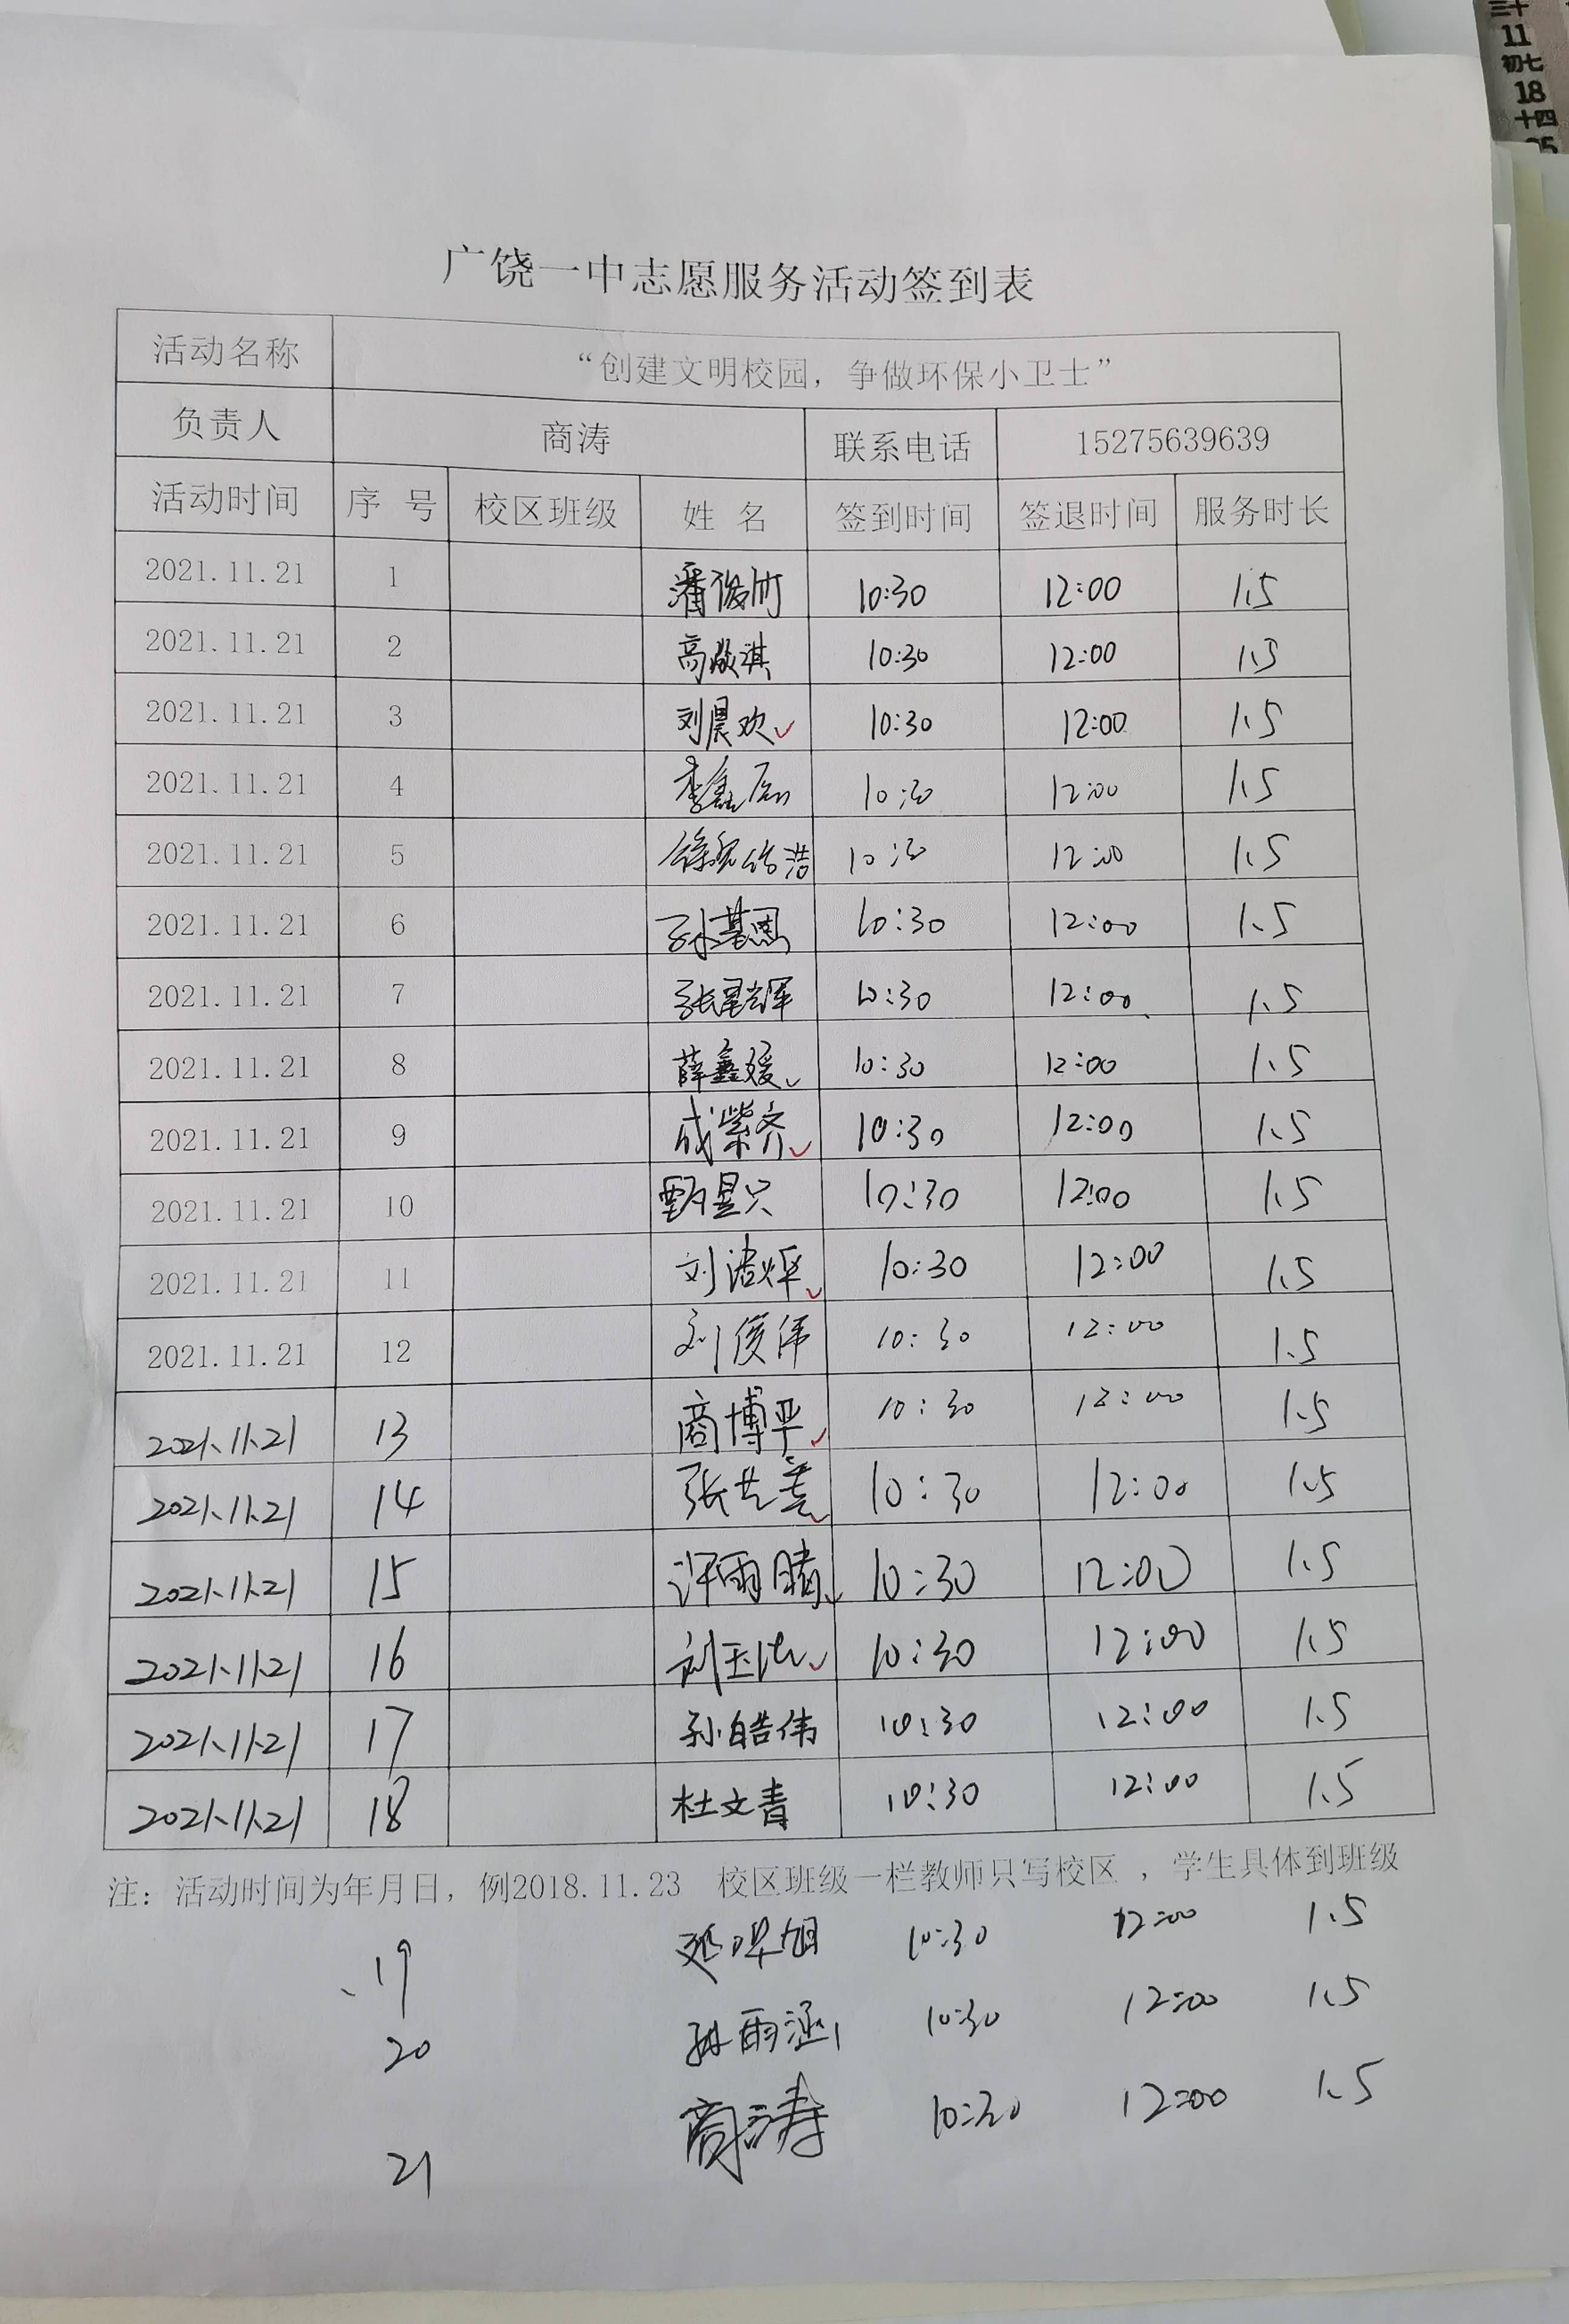 三十
11
初七
18
十四
广饶一中志愿服务活动签到表
活动名称 “创建文明校园，争做环保小卫士”
负责人 商涛 联系电话 15275639639
活动时间 序 号 校区班级 姓 名 签到时间 签退时间 服务时长
2021.11.21 1 10:30 12:00 1.5
2021.11.21 2 10:30 12:00 1.5
2021.11.21 3 刘晨欢 10:30 12:00 1.5
2021.11.21 4 10:30 12:00 1.5
2021.11.21 5 10:30 12:00 1.5
2021.11.21 6 10:30 12:00 1.5
2021.11.21 7 10:30 12:00 1.5
2021.11.21 8 薛鑫媛 10:30 12:00 1.5
2021.11.21 9 成紫齐 10:30 12:00 1.5
2021.11.21 10 10:30 12:00 1.5
2021.11.21 11 10:30 12:00 1.5
2021.11.21 12 刘俊伟 10:30 12:00 1.5
2021.11.21 13 商博平 10:30 12:00 1.5
2021.11.21 14 10:30 12:00 1.5
2021.11.21 15 许雨晴 10:30 12:00 1.5
2021.11.21 16 10:30 12:00 1.5
2021.11.21 17 孙皓伟 10:30 12:00 1.5
2021.11.21 18 杜文青 10:30 12:00 1.5
注：活动时间为年月日，例2018.11.23 校区班级一栏教师只写校区，学生具体到班级
19 10:30 12:00 1.5
20 孙雨涵 10:30 12:00 1.5
21 商涛 10:30 12:00 1.5